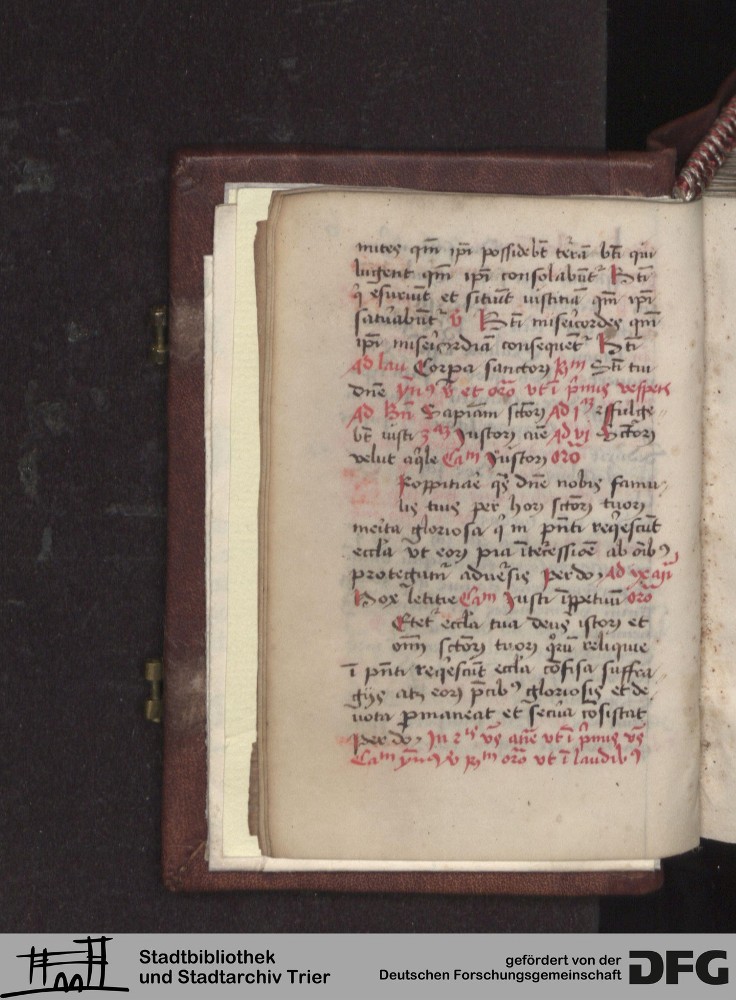 mites qm̄ ip̄i possidebt̄ terā bt̄i qui
lugent qm̄ ip̄i consolabūt᷑ Bt̄i
q̄ esuriūt et sitiūt iustitiā qm̄ ip̄i
saturabūt᷑ v̄ Bt̄i misericordes qm̄
ip̄i misericordiā consequēt᷑ Bt̄i
Ad lau Corpa sanctoꝝ Scī tui
dn̄e ꝟ et orō vt ī p̄mis vesperis
Ad Bn̄ Sapiam sctōꝝ Ad iᵃᵐ ffulge
bt̄ iusti 3ᵃᵐ Iustoꝝ aīe Ad vi Sctōꝝ
velut aq̄le Caᵐ Iustoꝝ orō
Roppitiare qs̄ dn̄e nobis famu
lis tuis per hoꝝ sctōꝝ tuoꝝ
merita gloriosa q̄ in pn̄ti req̄escūt
eccl̄a vt eoꝝ pia ītercessiōe ab oībꝰ
protegamur aduersis per do Ad
Vox letitie Caᵐ Iusti īppetuū orō
Etet᷑ eccl̄a tua deus istoꝝ et
oīm sctōꝝ tuoꝝ qͦrū reliquie
ī pn̄ti req̄escūt eccl̄a cōfisa suffra
gijs atꝗ eoꝝ p̄cibꝰ gloriosis et de
uota ꝑmaneat et secura cōsistat
per do In 2ⁱˢ vs̄ āne vt ī p̄mis vs̄
Caᵐ ꝟ orō vt ī laudibꝰ
Stadtbibliothek
und Stadtarchiv Trier
gefördert von der
Deutschen Forschungsgemeinschaft
DFG